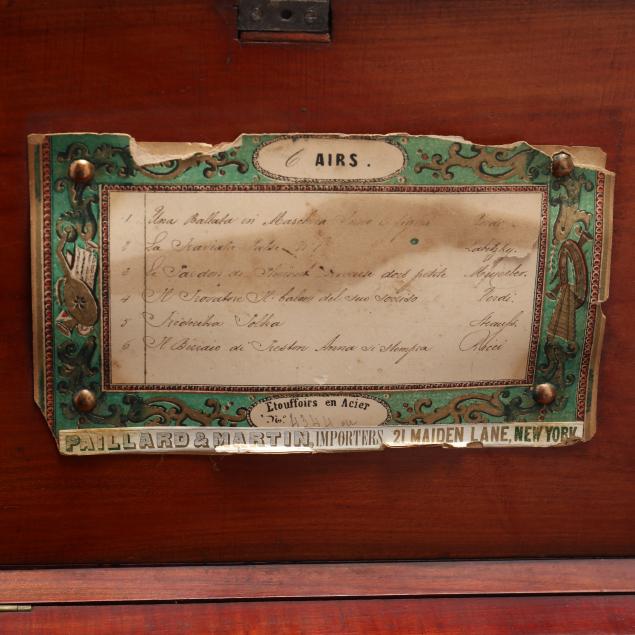 6 AIRS.
1 Una Ballata in Maschera Verdi
2 La Traviata Labitzky.
3 Le Pardon de petite Meyerber.
4 Il Trovatore Il balen del suo sorriso Verdi.
5 Polka Strauss.
6 Il Birraio di Preston Anna Ricci
Etouffoirs en Acier
No. 4344
PAILLARD & MARTIN, IMPORTERS 21 MAIDEN LANE, NEW YORK